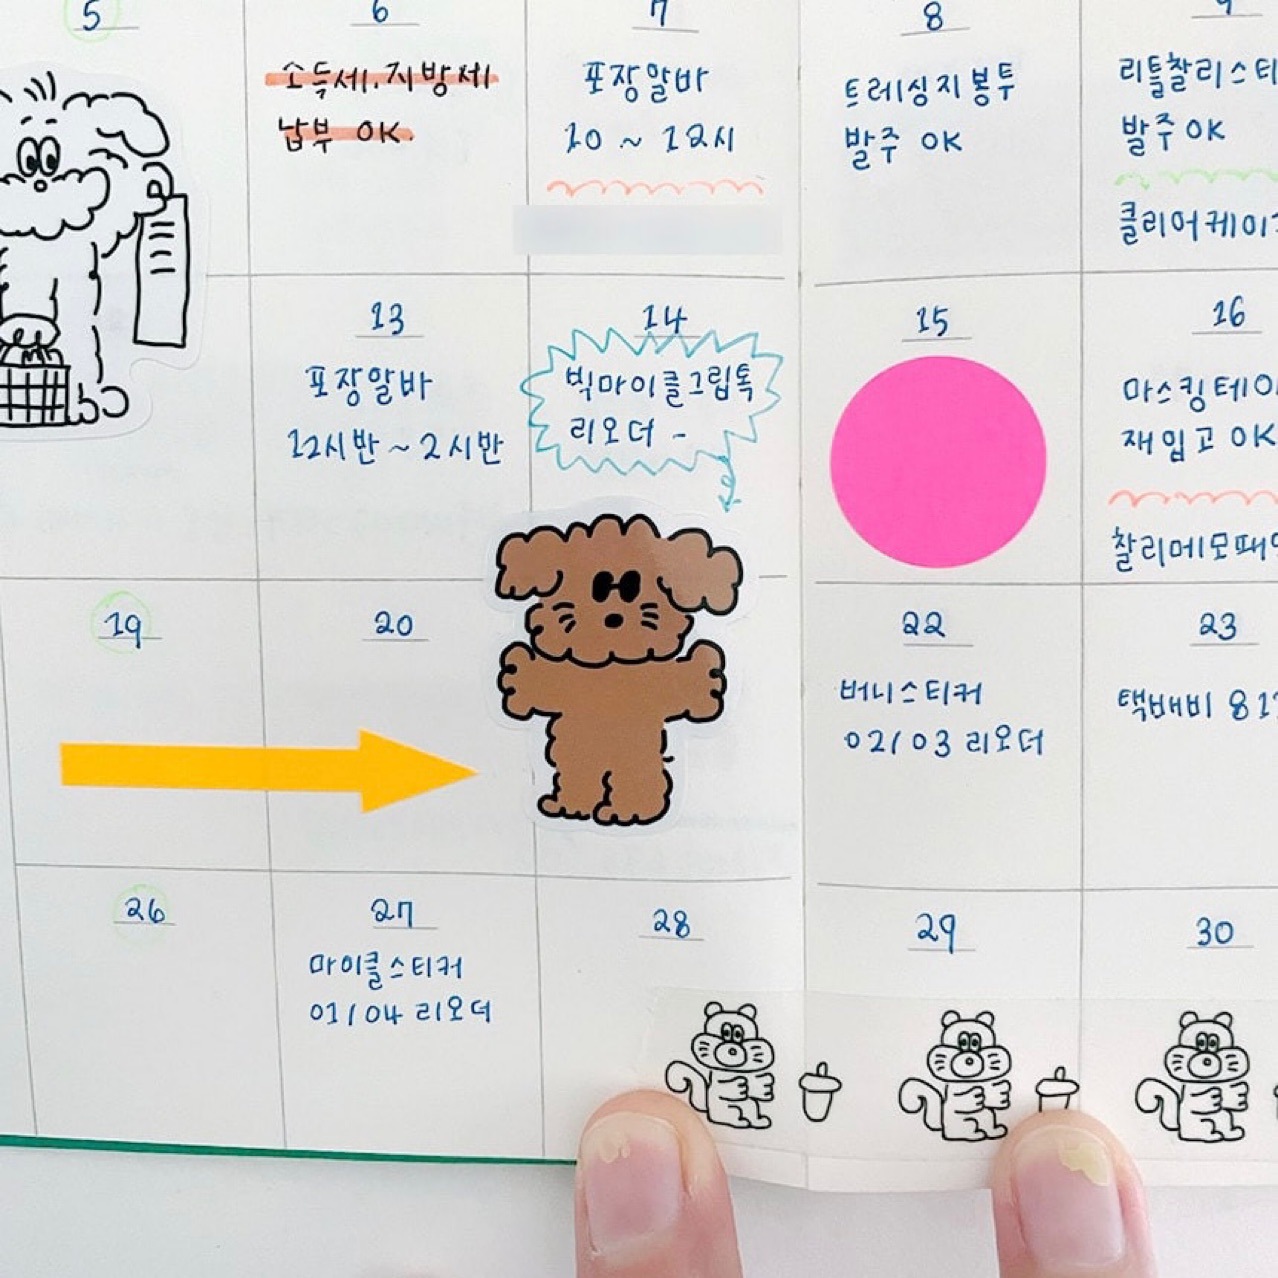 5
6
소득세.지방세
납부 OK.
7
포장알바
10 ~ 12시
8
트레싱지봉투
발주 OK
9
리틀찰리스티
발주 OK
클리어케이
13
포장알바
12시반 ~ 2시반
14
빅마이클그립톡
리오더 ~
15
16
마스킹테이
재입고 OK
찰리메모패
19
20
22
버니스티커
02/03 리오더
23
택배비 81
26
27
마이클스티커
01/04 리오더
28
29
30